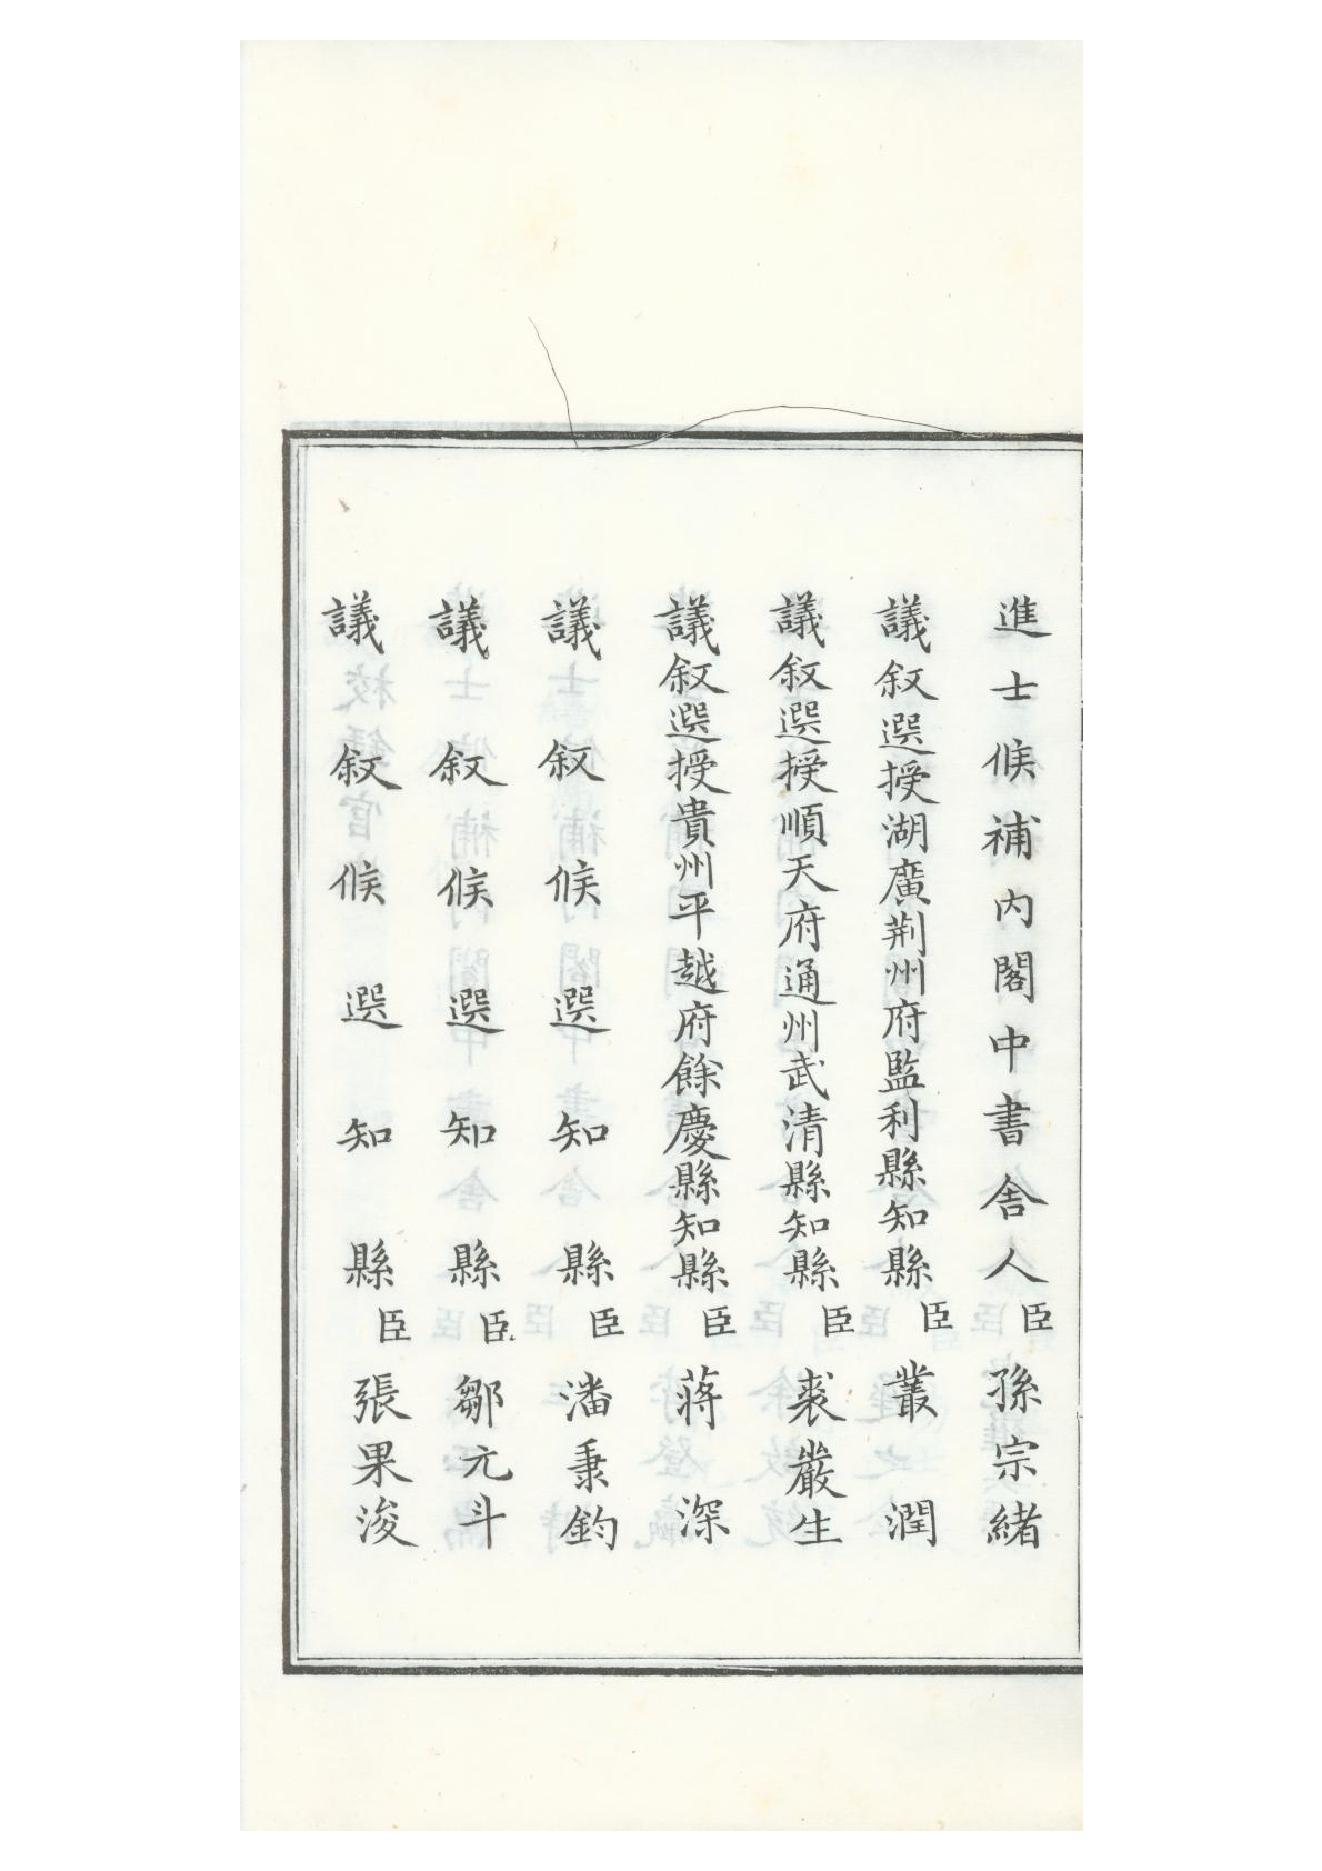 進士候補内閣中書舍人臣孫宗緒
議叙選授湖廣荆州府監利縣知縣臣叢潤
議叙選授順天府通州武清縣知縣臣裘嚴生
議叙選授貴州平越府餘慶縣知縣臣蔣深
議叙候選知縣臣潘秉鈞
議叙候選知縣臣鄒元斗
議叙候選知縣臣張杲浚